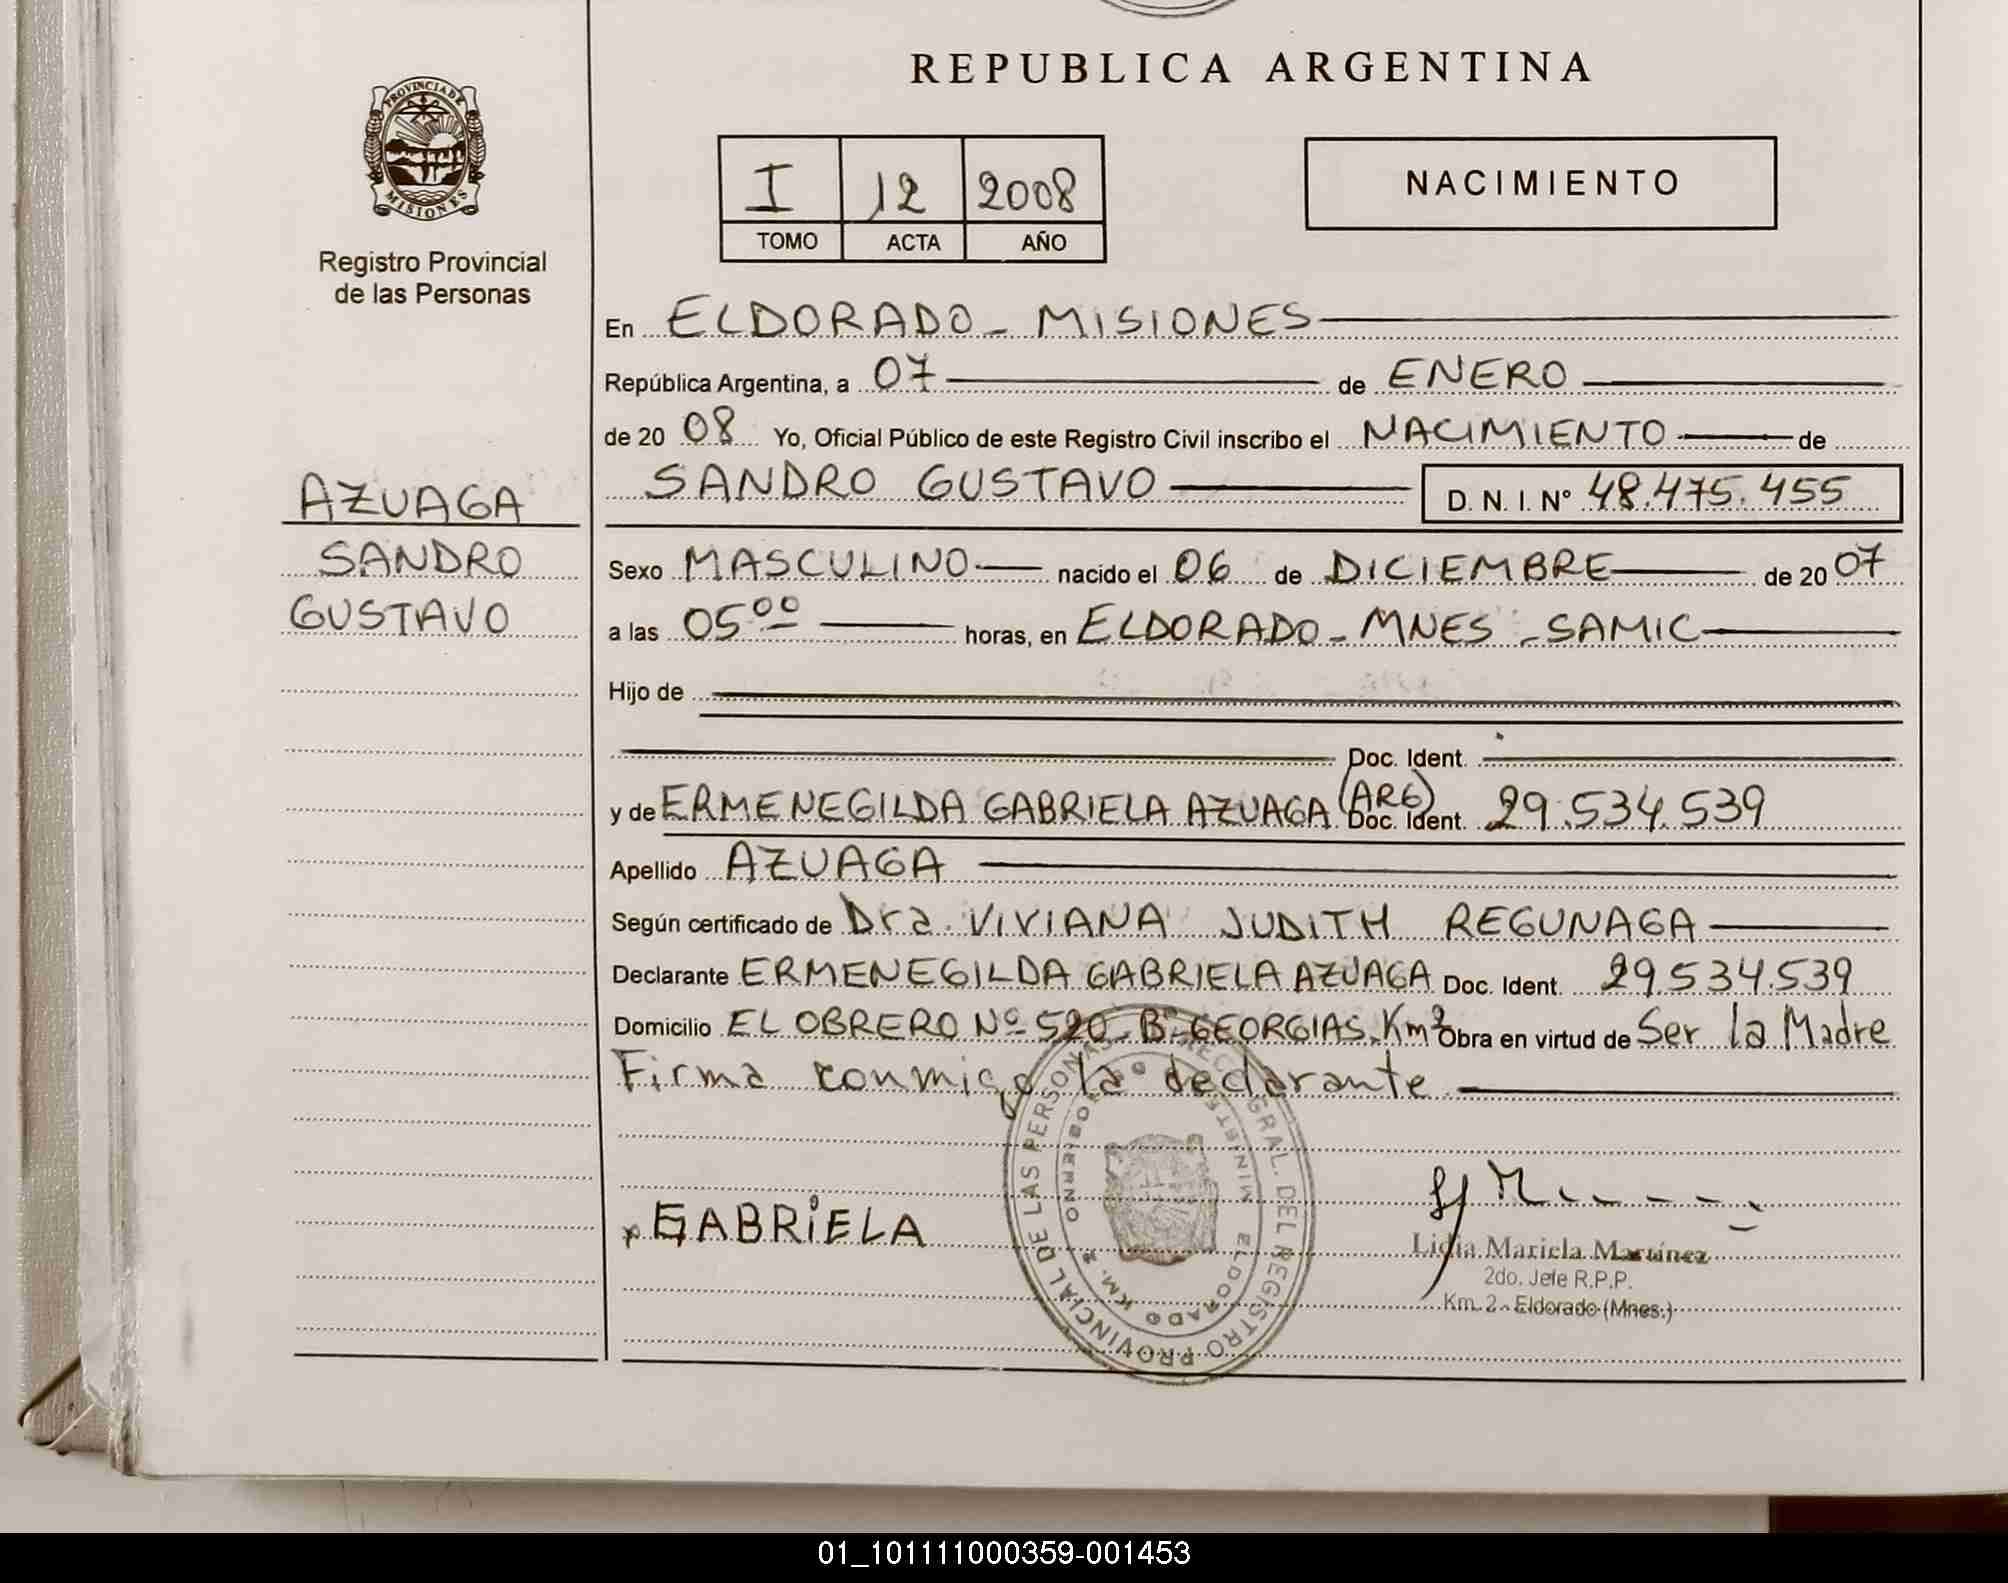 REPUBLICA ARGENTINA
PROVINCIA DE
MISIONES
Registro Provincial
de las Personas
I 12 2008
TOMO ACTA AÑO
NACIMIENTO
En ELDORADO - MISIONES
República Argentina, a 07 de ENERO
de 20 08 Yo, Oficial Público de este Registro Civil inscribo el NACIMIENTO de
SANDRO GUSTAVO D. N. I. Nº 48.475.455
AZUAGA
SANDRO
GUSTAVO
Sexo MASCULINO nacido el 06 de DICIEMBRE de 20 07
a las 05 00 horas, en ELDORADO - MNES - SAMIC
Hijo de
Doc. Ident.
y de ERMENEGILDA GABRIELA AZUAGA (ARG) Doc. Ident. 29.534.539
Apellido AZUAGA
Según certificado de Dra. VIVIANA JUDITH REGUNAGA
Declarante ERMENEGILDA GABRIELA AZUAGA Doc. Ident. 29.534.539
Domicilio EL OBRERO Nº 520 - Bº GEORGIAS. Km 2 Obra en virtud de Ser la Madre
Firma conmigo la declarante
GABRIELA
GRAL. DEL REGISTRO PROVINCIAL DE LAS PERSONAS
GOBIERNO
ELDORADO KM. 2
Lidia Mariela Martínez
2do. Jefe R.P.P.
Km. 2 - Eldorado (Mnes.)
01_101111000359-001453